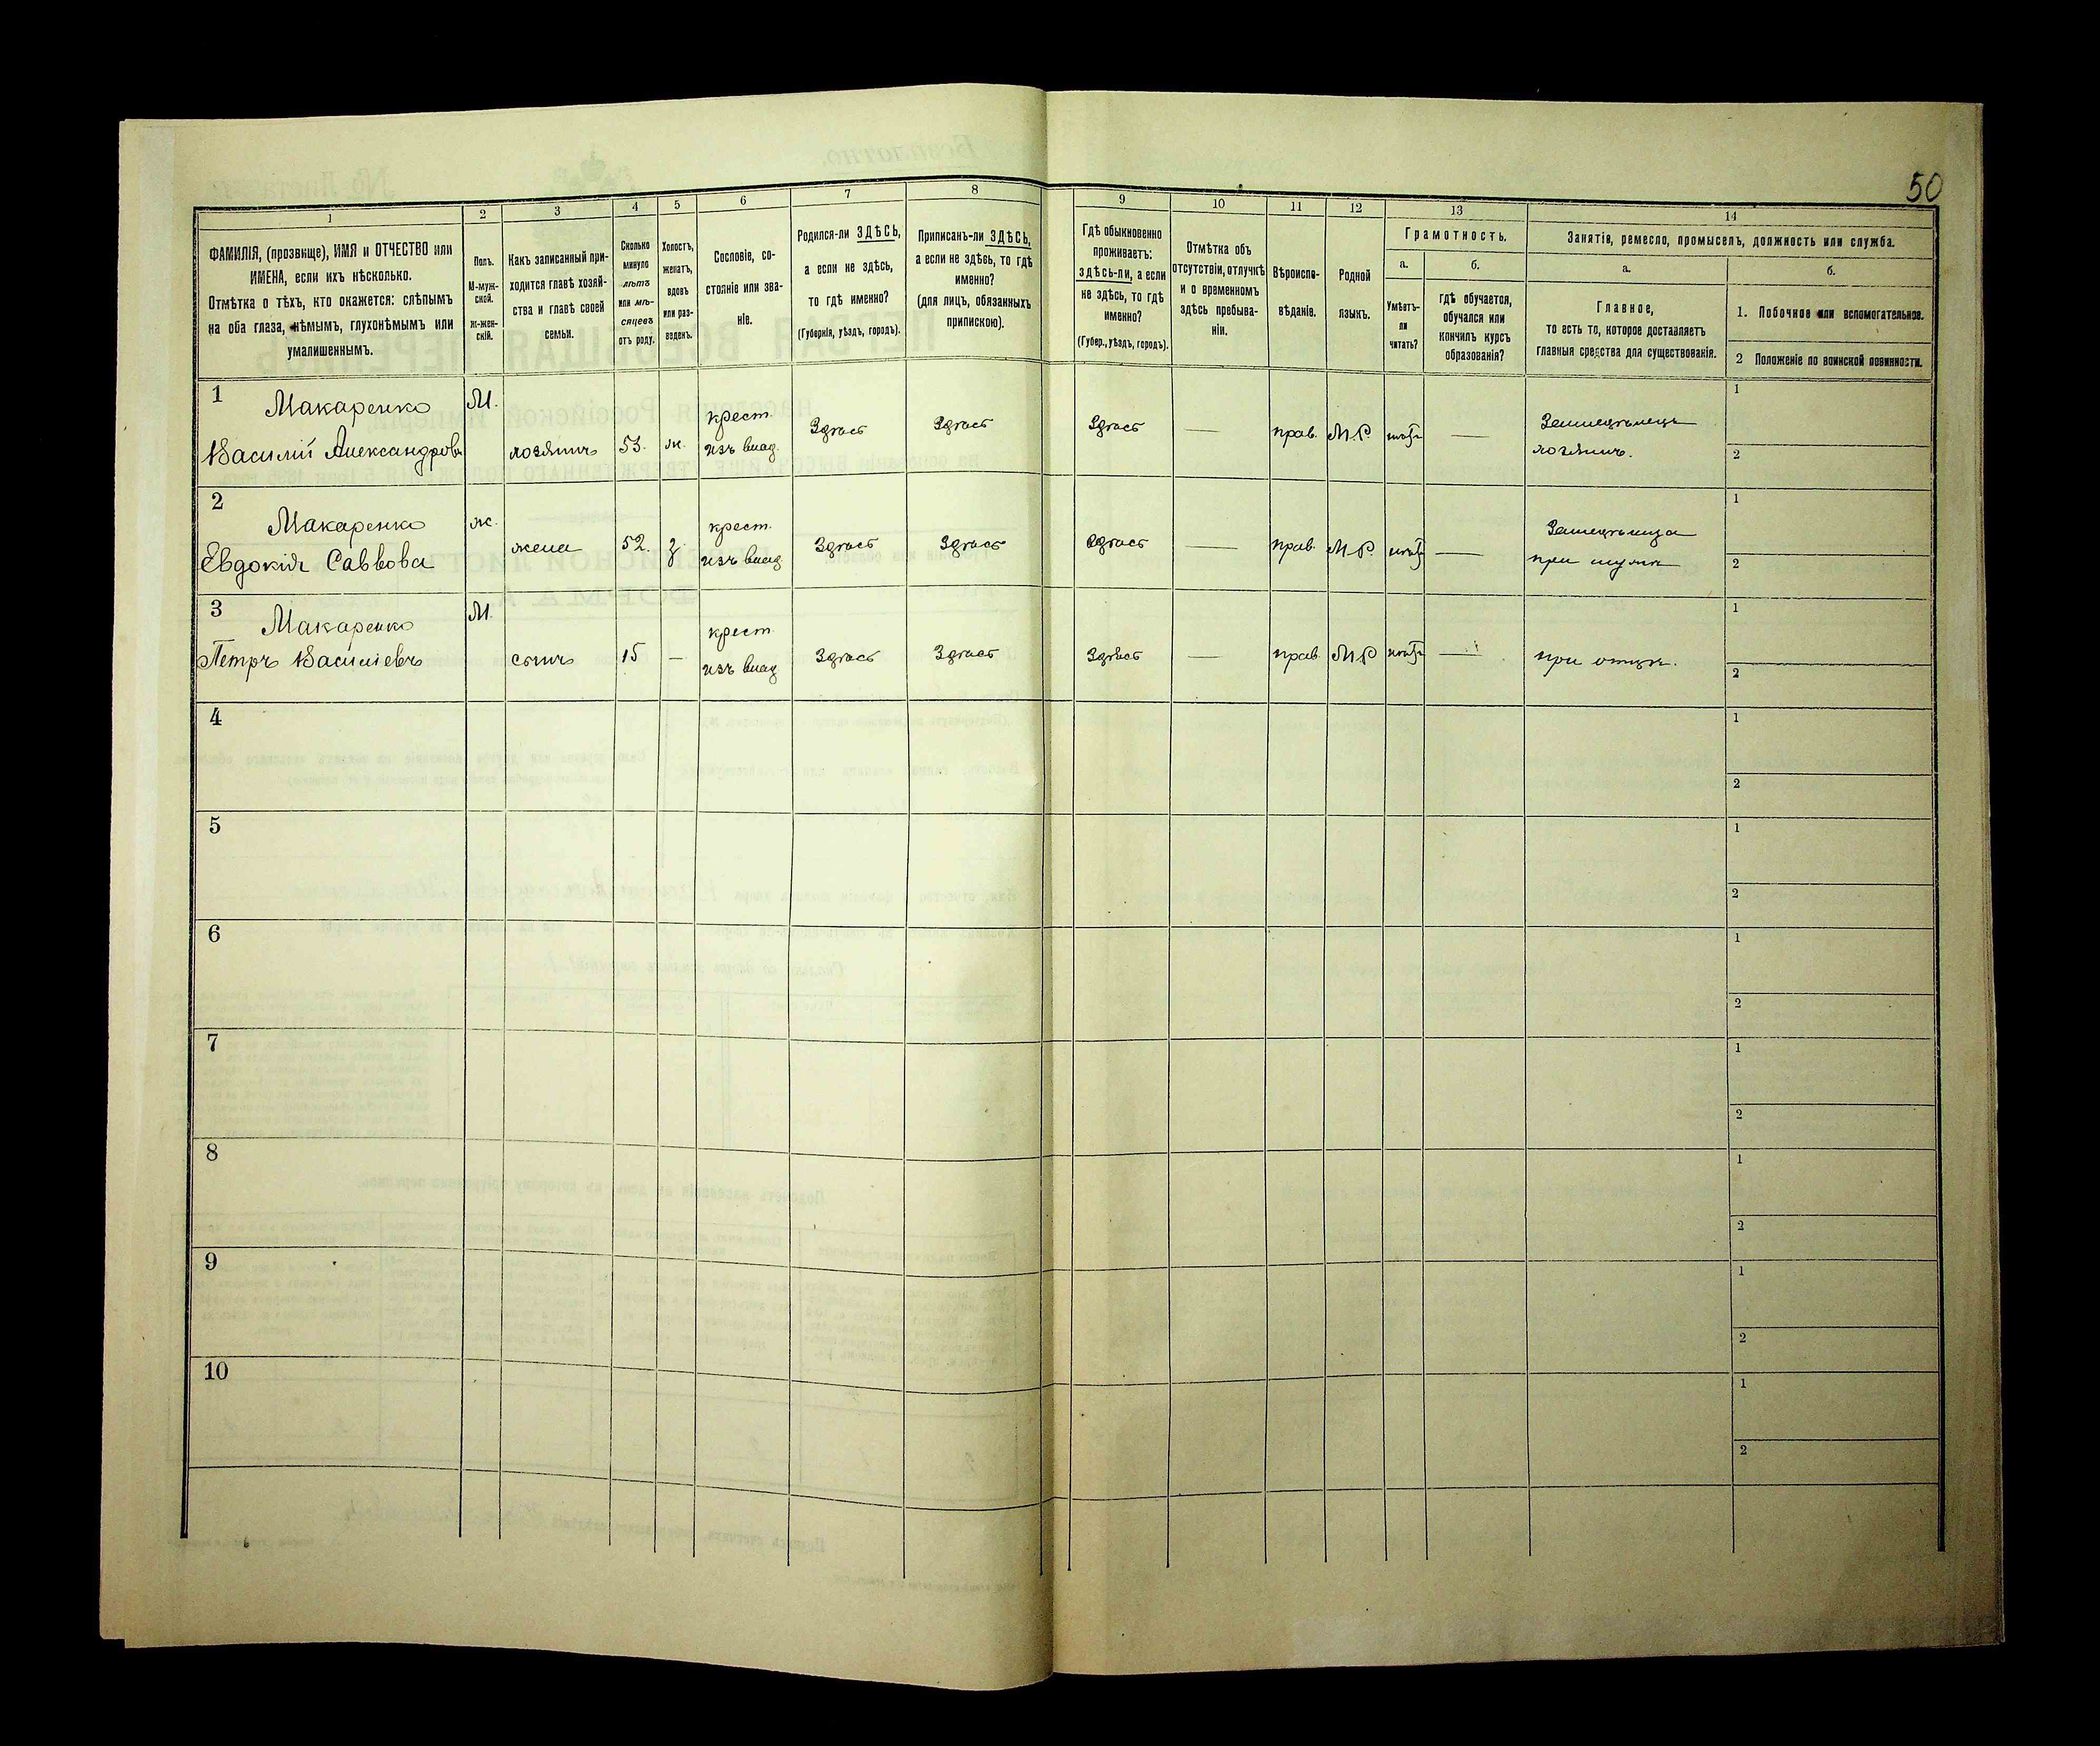 50
1 2 3 4 5 6 7 8 9 10 11 12 13 14
ФАМИЛІЯ, (прозвище), ИМЯ и ОТЧЕСТВО или
ИМЕНА, если ихъ нѣсколько.
Отмѣтка о тѣхъ, кто окажется: слѣпымъ
на оба глаза, нѣмымъ, глухонѣмымъ или
умалишеннымъ.
Полъ.
М-муж-
ской.
Ж-жен-
скій.
Какъ записанный при-
ходится главѣ хозяй-
ства и главѣ своей
семьи.
Сколько
минуло
лѣтъ
или мѣ-
сяцевъ
отъ роду.
Холостъ,
женатъ,
вдовъ
или раз-
веденъ.
Сословіе, со-
стояніе или зва-
ніе.
Родился-ли ЗДѢСЬ,
а если не здѣсь,
то гдѣ именно?
(Губернія, уѣздъ, городъ).
Приписанъ-ли ЗДѢСЬ,
а если не здѣсь, то гдѣ
именно?
(для лицъ, обязанныхъ
припискою).
Гдѣ обыкновенно
проживаетъ:
здѣсь-ли, а если
не здѣсь, то гдѣ
именно?
(Губер., уѣздъ, городъ).
Отмѣтка объ
отсутствіи, отлучкѣ
и о временномъ
здѣсь пребыва-
ніи.
Вѣроиспо-
вѣданіе.
Родной
языкъ.
Грамотность.
а.
Умѣетъ-
ли
читать?
б.
гдѣ обучается,
обучался или
кончилъ курсъ
образованія?
Занятія, ремесло, промыселъ, должность или служба.
а.
Главное,
то есть то, которое доставляетъ
главныя средства для существованія.
б.
1. Побочное или вспомогательное.
2 Положеніе по воинской повинности.
1 Макаренко М. крест. Земледѣлецъ 1
Василій Александровъ хозяинъ 53. ж. изъ влад. Здѣсь Здѣсь Здѣсь — прав. М.Р. нѣтъ — хозяинъ. 2
2 Макаренко ж. крест. Земледѣлица 1
Евдокія Саввова жена 52. з. изъ влад. Здѣсь Здѣсь Здѣсь — прав. М.Р. нѣтъ — при мужѣ 2
3 Макаренко М. крест. 1
Петръ Василіевъ сынъ 15 — изъ влад. Здѣсь Здѣсь Здѣсь — прав. М.Р. нѣтъ — при отцѣ. 2
4 1
2
5 1
2
6 1
2
7 1
2
8 1
2
9 1
2
10 1
2